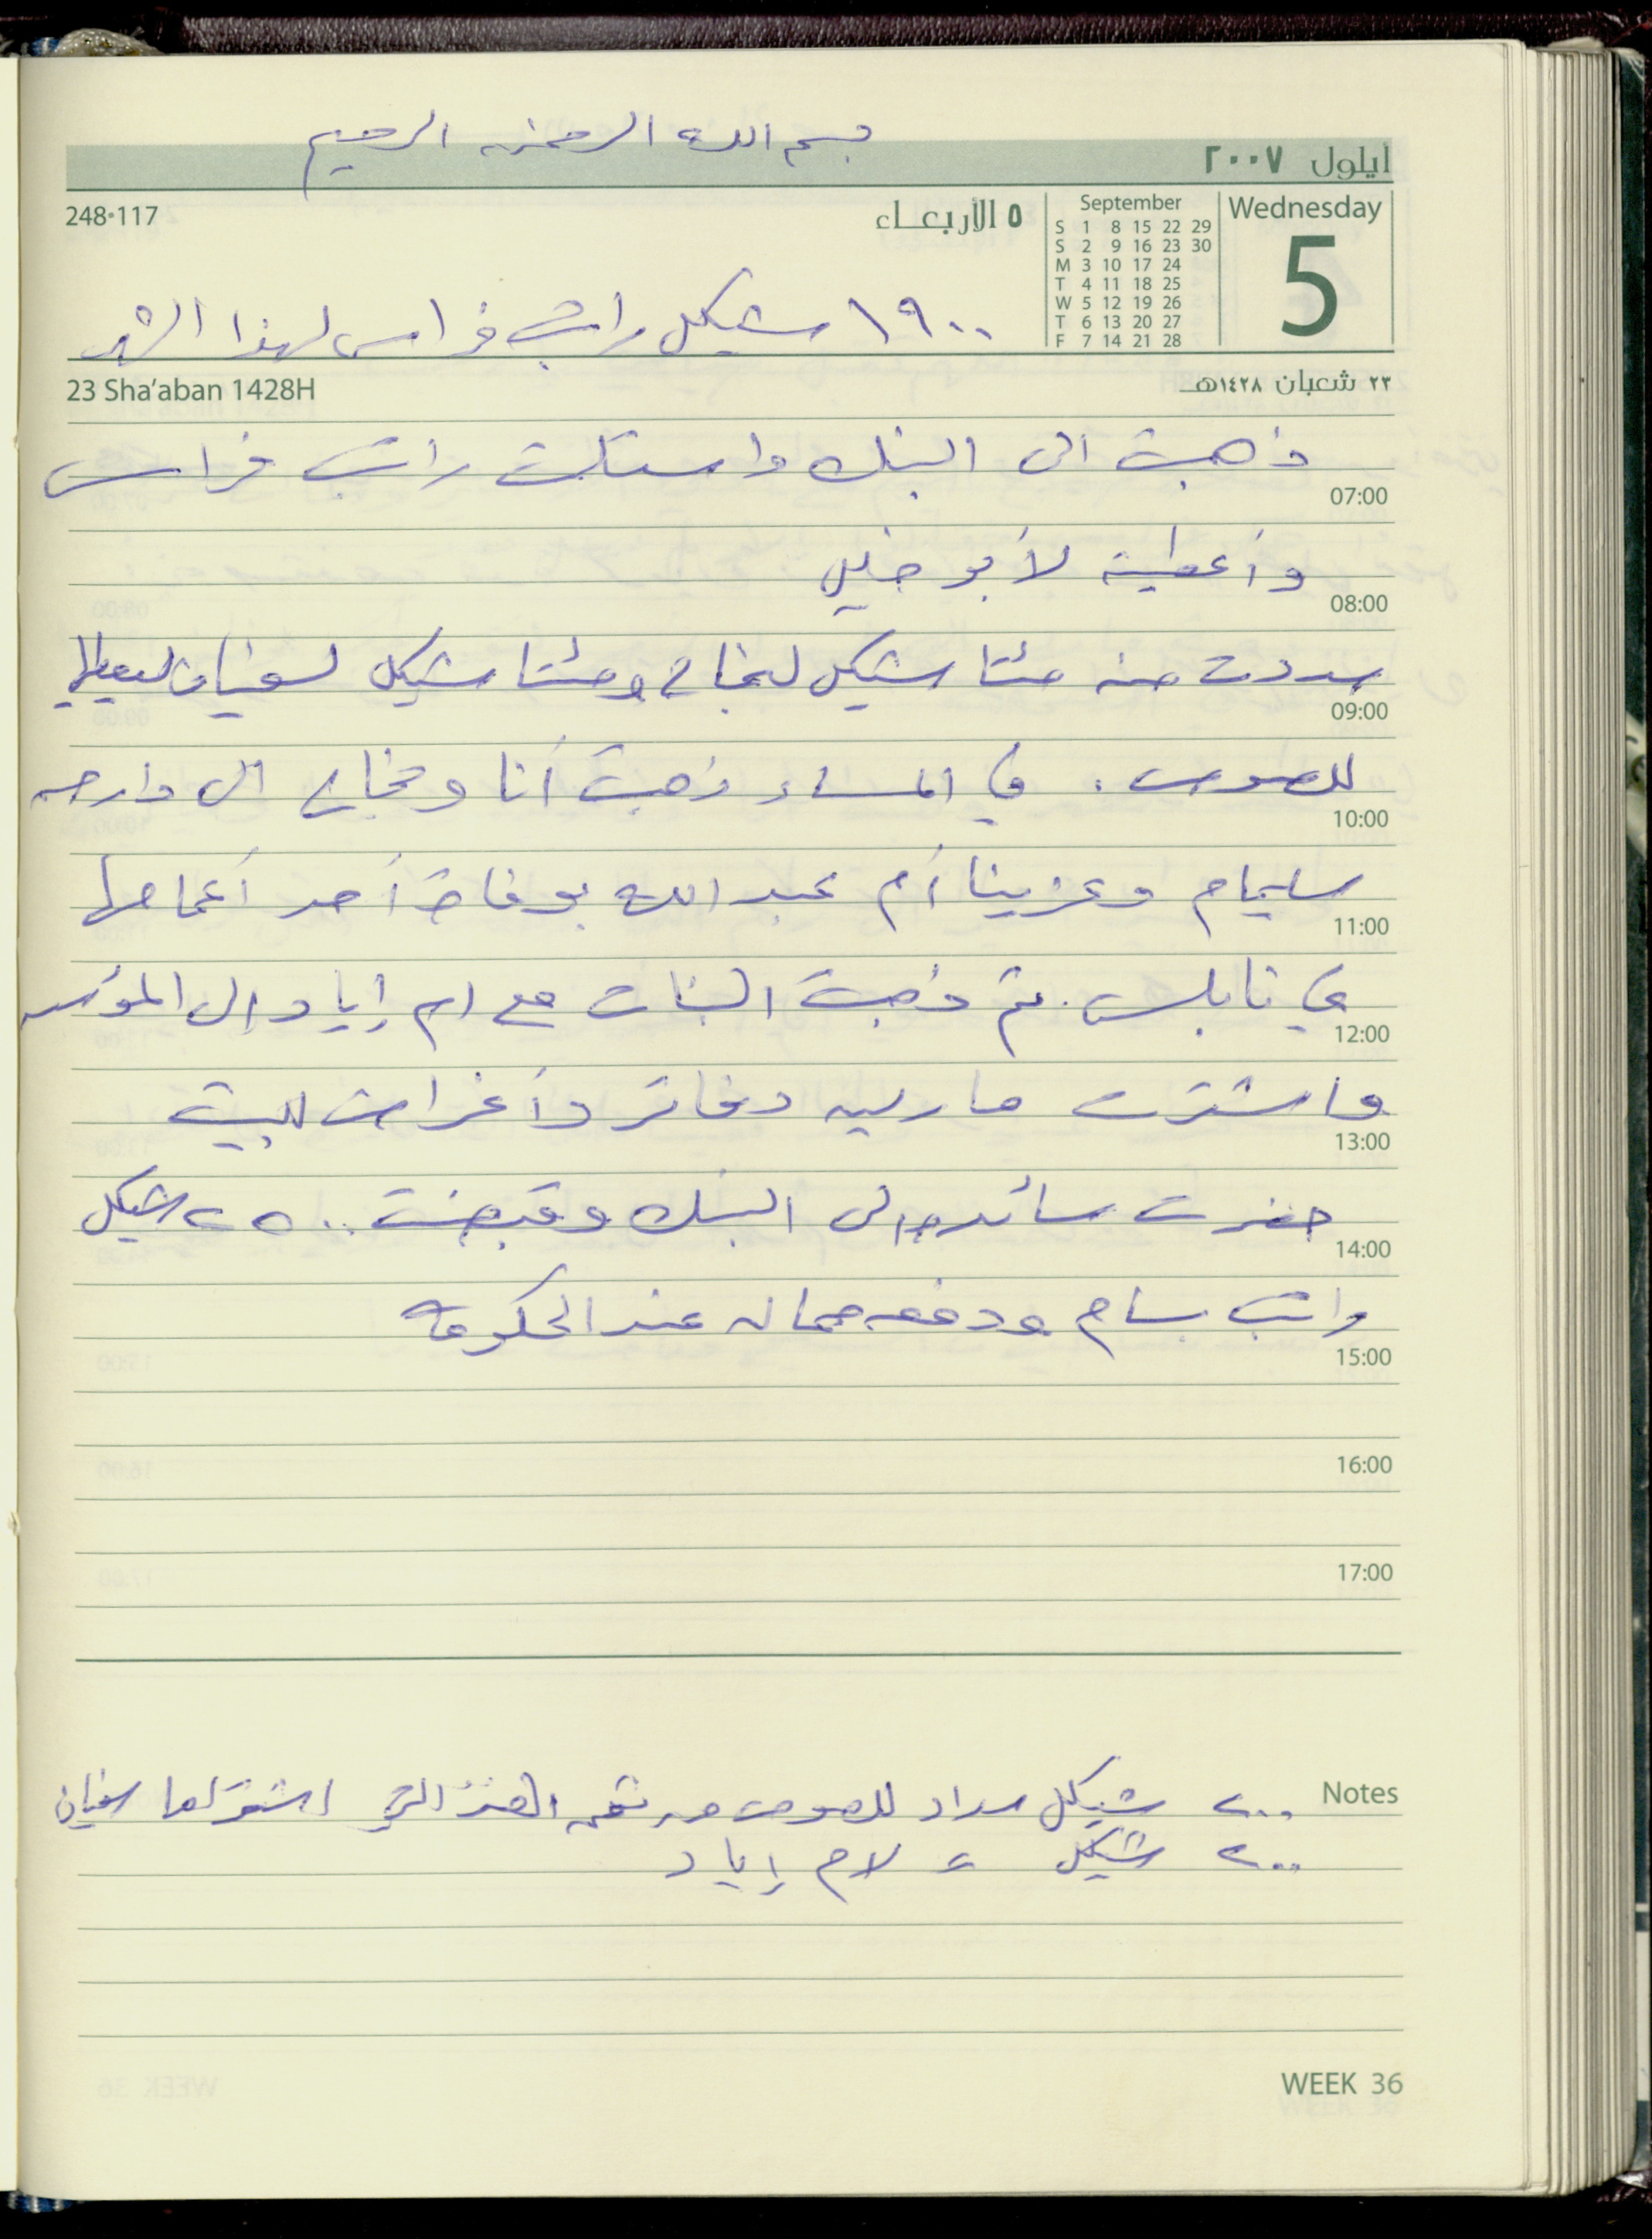 بسم الله الرحمن الرحيم
أيلول ٢٠٠٧
Wednesday
5
September
S 1 8 15 22 29
S 2 9 16 23 30
M 3 10 17 24
T 4 11 18 25
W 5 12 19 26
T 6 13 20 27
F 7 14 21 28
٥ الأربعاء
248-117
١٩٠٠ شيكل راتب فراس لهذا الشهر
٢٣ شعبان ١٤٢٨هـ
23 Sha'aban 1428H
ذهبت الى البنك واستلمت راتب فراس
07:00
وأعطيته لأبو خليل
08:00
سددت منه مئتا شيكل لنجاح ومئتا شيكل لسفيان ليعطيها
09:00
للصوص. في المساء ذهبت أنا ونجاح الى دار
10:00
سليمان وعزينا أم عبد الله بوفاة أحد أعمامها
11:00
في نابلس. ثم ذهبت البنات مع ام إياد إلى
12:00
واشترت دفاتر وأغراض للبيت
13:00
حضرت سائده الى البنك وقبضت ٢٥٠٠ شيكل
14:00
راتب بسام ودفعه عند الحكومة
15:00
16:00
17:00
Notes
٢٠٠ شيكل سداد للصوص من ثمن التي اشتراها سفيان
٢٠٠ شيكل لام إياد
WEEK 36